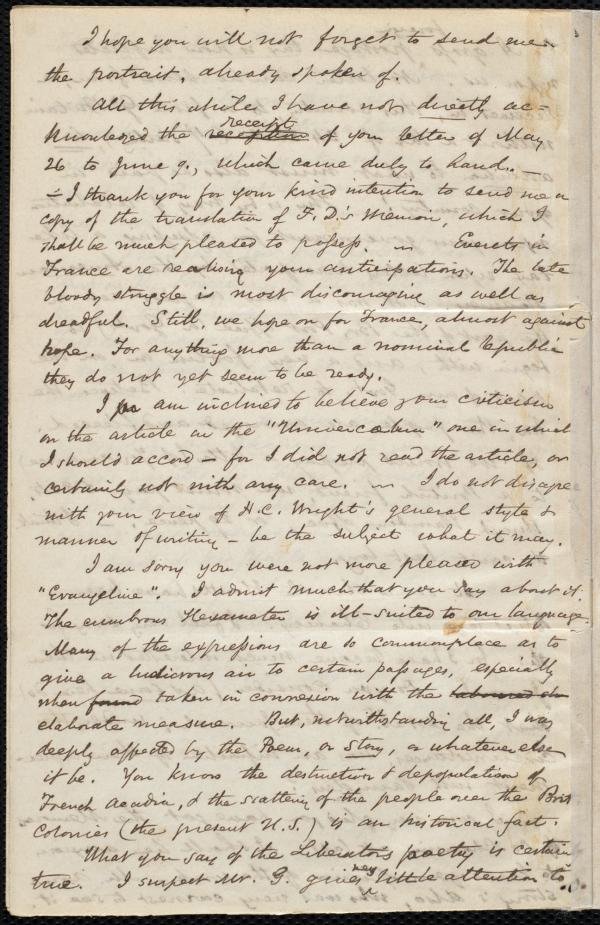 I hope you will not forget to send me
the portrait, already spoken of.
All this while, I have not directly ac=
knowledged the reception receipt of your letter of May
26 to June 9, which came duly to hand. —
— I thank you for your kind intention to send me a
copy of the translation of F. D.'s Memoir, which I
shall be much pleased to possess. — Events in
France are realising your anticipations. The late
bloody struggle is most discouraging as well as
dreadful. Still, we hope on for France, almost against
hope. For anything more than a nominal Republic
they do not yet seem to be ready.
I am inclined to believe your criticism
on the article in the "Univercœlum" one in which
I should accord — for I did not read the article, or
certainly not with any care. — I do not disagree
with your view of H. C. Wright's general style &
manner of writing — be the subject what it may.
I am sorry you were not more pleased with
"Evangeline". I admit much that you say about it.
The cumbrous Hexameter is ill-suited to our language.
Many of the expressions are so commonplace as to
give a ludicrous air to certain passages, especially
when found taken in connexion with the laboured
elaborate measure. But, notwithstanding all, I was
deeply affected by the Poem, or Story, or whatever else
it be. You know the destruction & depopulation of
French Acadia, & the scattering of the people over the Brit
Colonies (the present U.S.) is an historical fact.
What you say of the Liberator's poetry is certainly
true. I suspect Mr. G. gives very little attention to